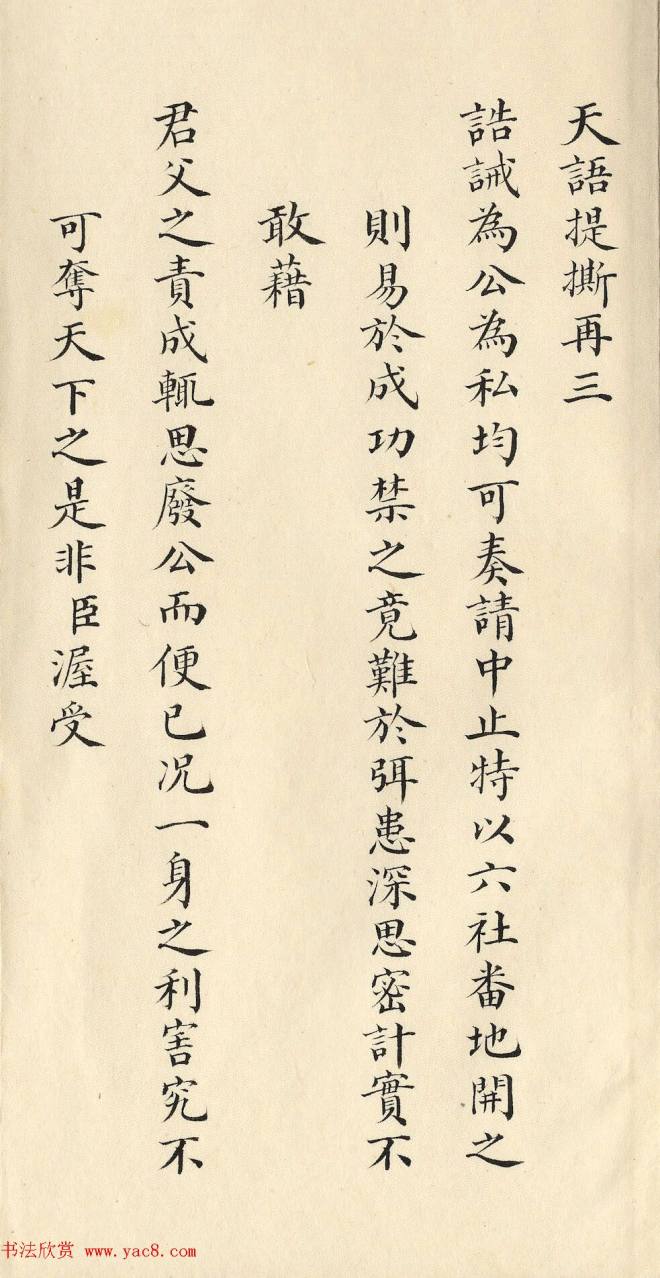 天語提撕再三
誥誡為公為私均可奏請中止特以六社番地開之
則易於成功禁之竟難於弭患深思密計實不
敢藉
君父之責成輒思廢公而便已况一身之利害究不
可奪天下之是非臣渥受
书法欣赏 www.yac8.com